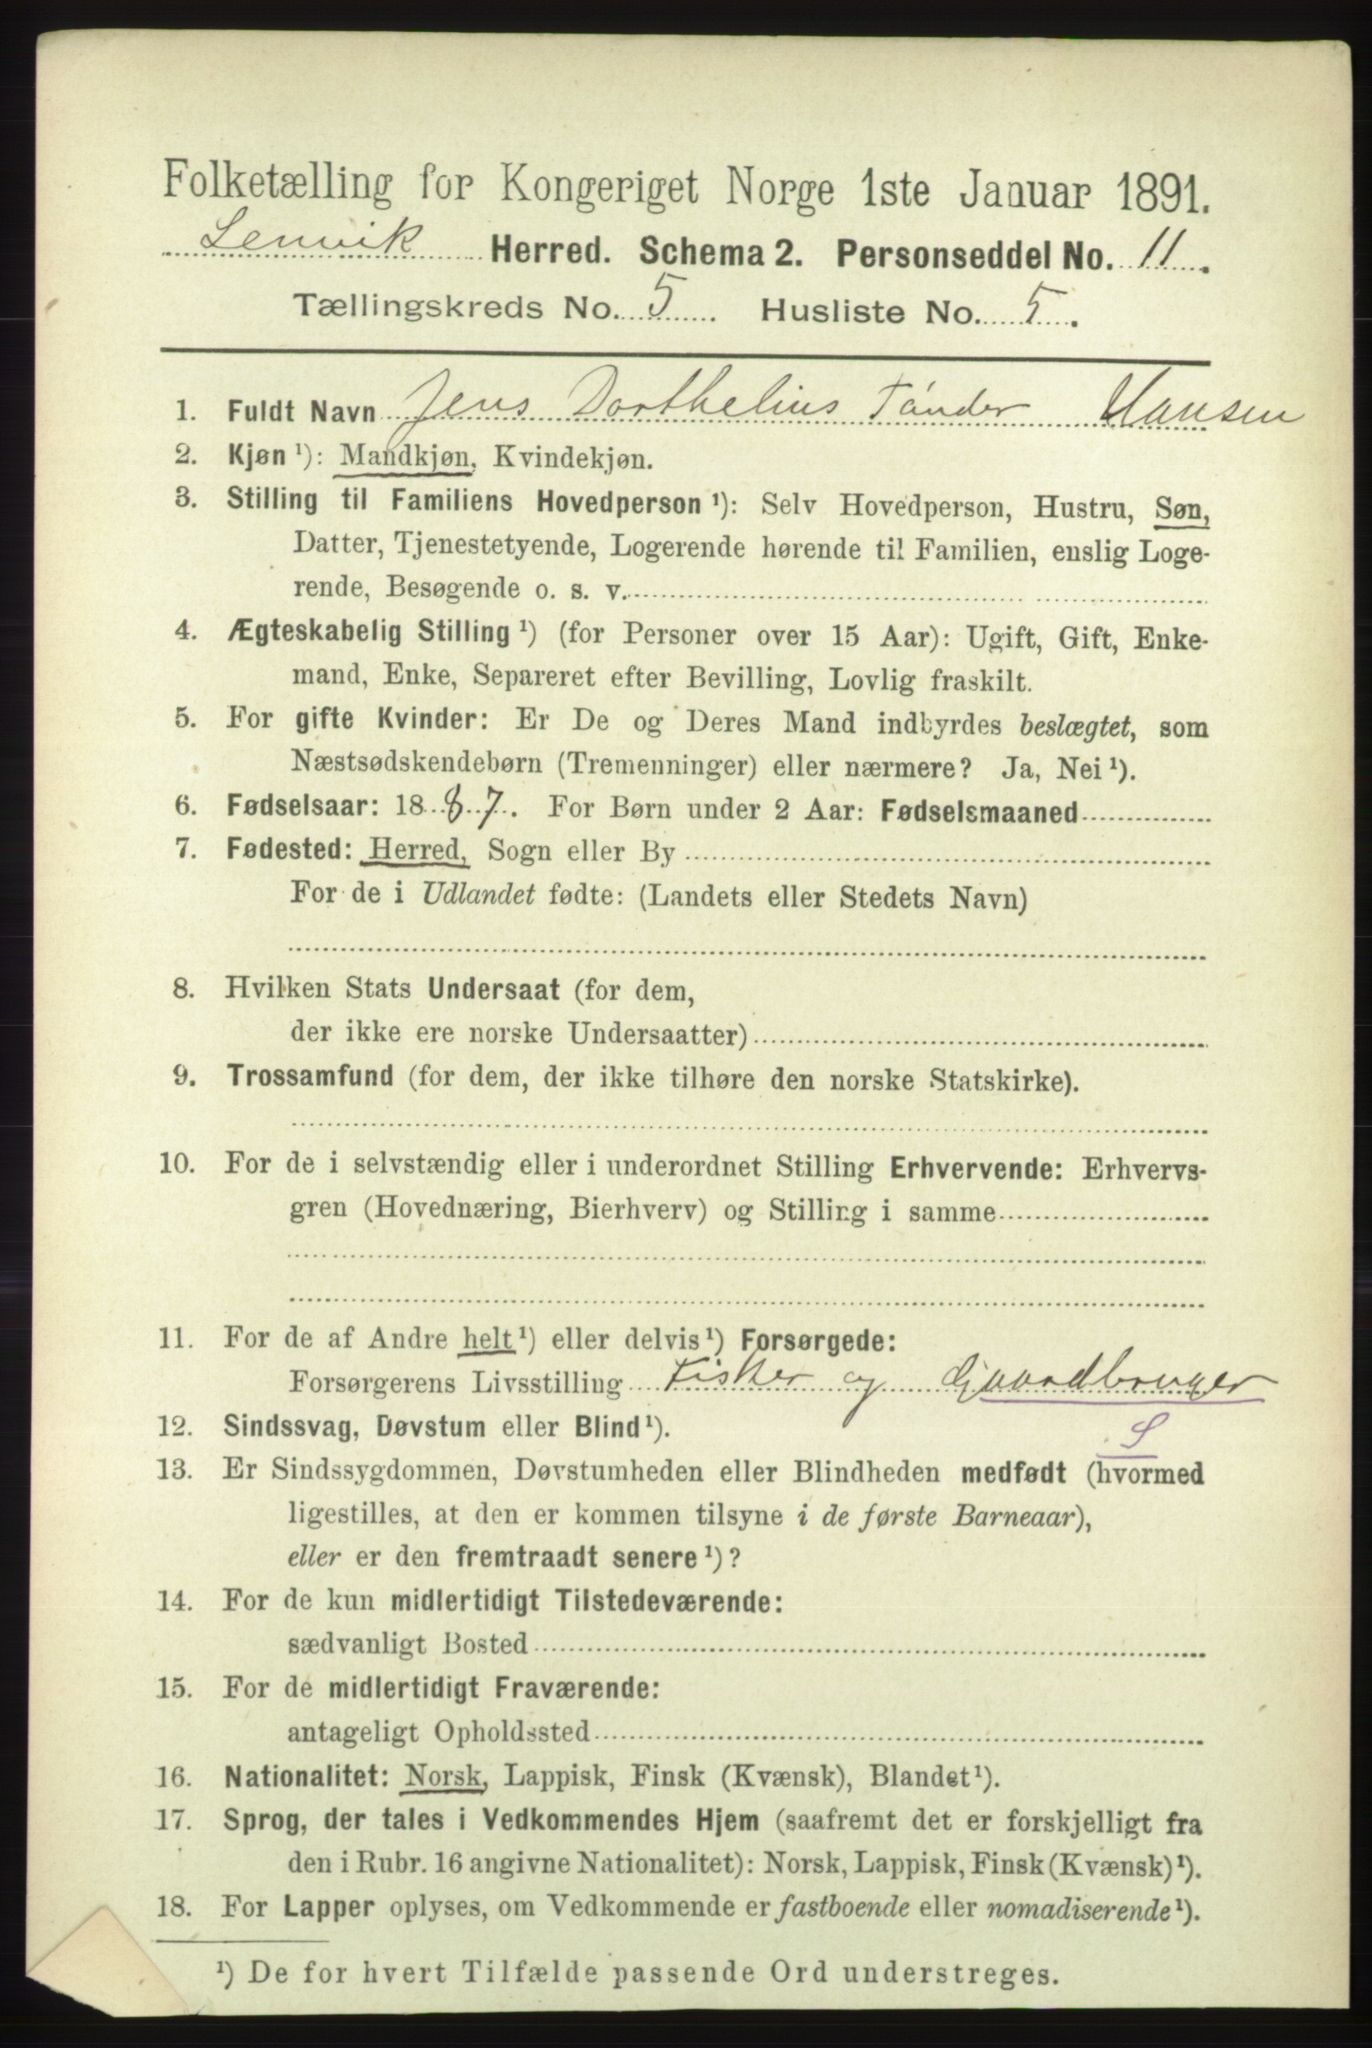 Folketælling for Kongeriget Norge 1ste Januar 1891.
Lenvik Herred. Schema 2. Personseddel No. 11.
Tællingskreds No. 5. Husliste No. 5.
1. Fuldt Navn Jens Dorthelius Tønder Hansen
2. Kjøn ¹): Mandkjøn, Kvindekjøn.
3. Stilling til Familiens Hovedperson ¹): Selv Hovedperson, Hustru, Søn,
Datter, Tjenestetyende, Logerende hørende til Familien, enslig Loge-
rende, Besøgende o. s. v.
4. Ægteskabelig Stilling ¹) (for Personer over 15 Aar): Ugift, Gift, Enke-
mand, Enke, Separeret efter Bevilling, Lovlig fraskilt.
5. For gifte Kvinder: Er De og Deres Mand indbyrdes beslægtet, som
Næstsødskendebørn (Tremenninger) eller nærmere? Ja, Nei ¹).
6. Fødselsaar: 1887. For Børn under 2 Aar: Fødselsmaaned
7. Fødested: Herred, Sogn eller By
For de i Udlandet fødte: (Landets eller Stedets Navn)
8. Hvilken Stats Undersaat (for dem,
der ikke ere norske Undersaatter)
9. Trossamfund (for dem, der ikke tilhøre den norske Statskirke).
10. For de i selvstændig eller i underordnet Stilling Erhvervende: Erhvervs-
gren (Hovednæring, Bierhverv) og Stilling i samme
11. For de af Andre helt ¹) eller delvis ¹) Forsørgede:
Forsørgerens Livsstilling Fisker og Gjaardbruger
S
12. Sindssvag, Døvstum eller Blind ¹).
13. Er Sindssygdommen, Døvstumheden eller Blindheden medfødt (hvormed
ligestilles, at den er kommen tilsyne i de første Barneaar),
eller er den fremtraadt senere ¹)?
14. For de kun midlertidigt Tilstedeværende:
sædvanligt Bosted
15. For de midlertidigt Fraværende:
antageligt Opholdssted
16. Nationalitet: Norsk, Lappisk, Finsk (Kvænsk), Blandet ¹).
17. Sprog, der tales i Vedkommendes Hjem (saafremt det er forskjelligt fra
den i Rubr. 16 angivne Nationalitet): Norsk, Lappisk, Finsk (Kvænsk) ¹).
18. For Lapper oplyses, om Vedkommende er fastboende eller nomadiserende ¹).
¹) De for hvert Tilfælde passende Ord understreges.